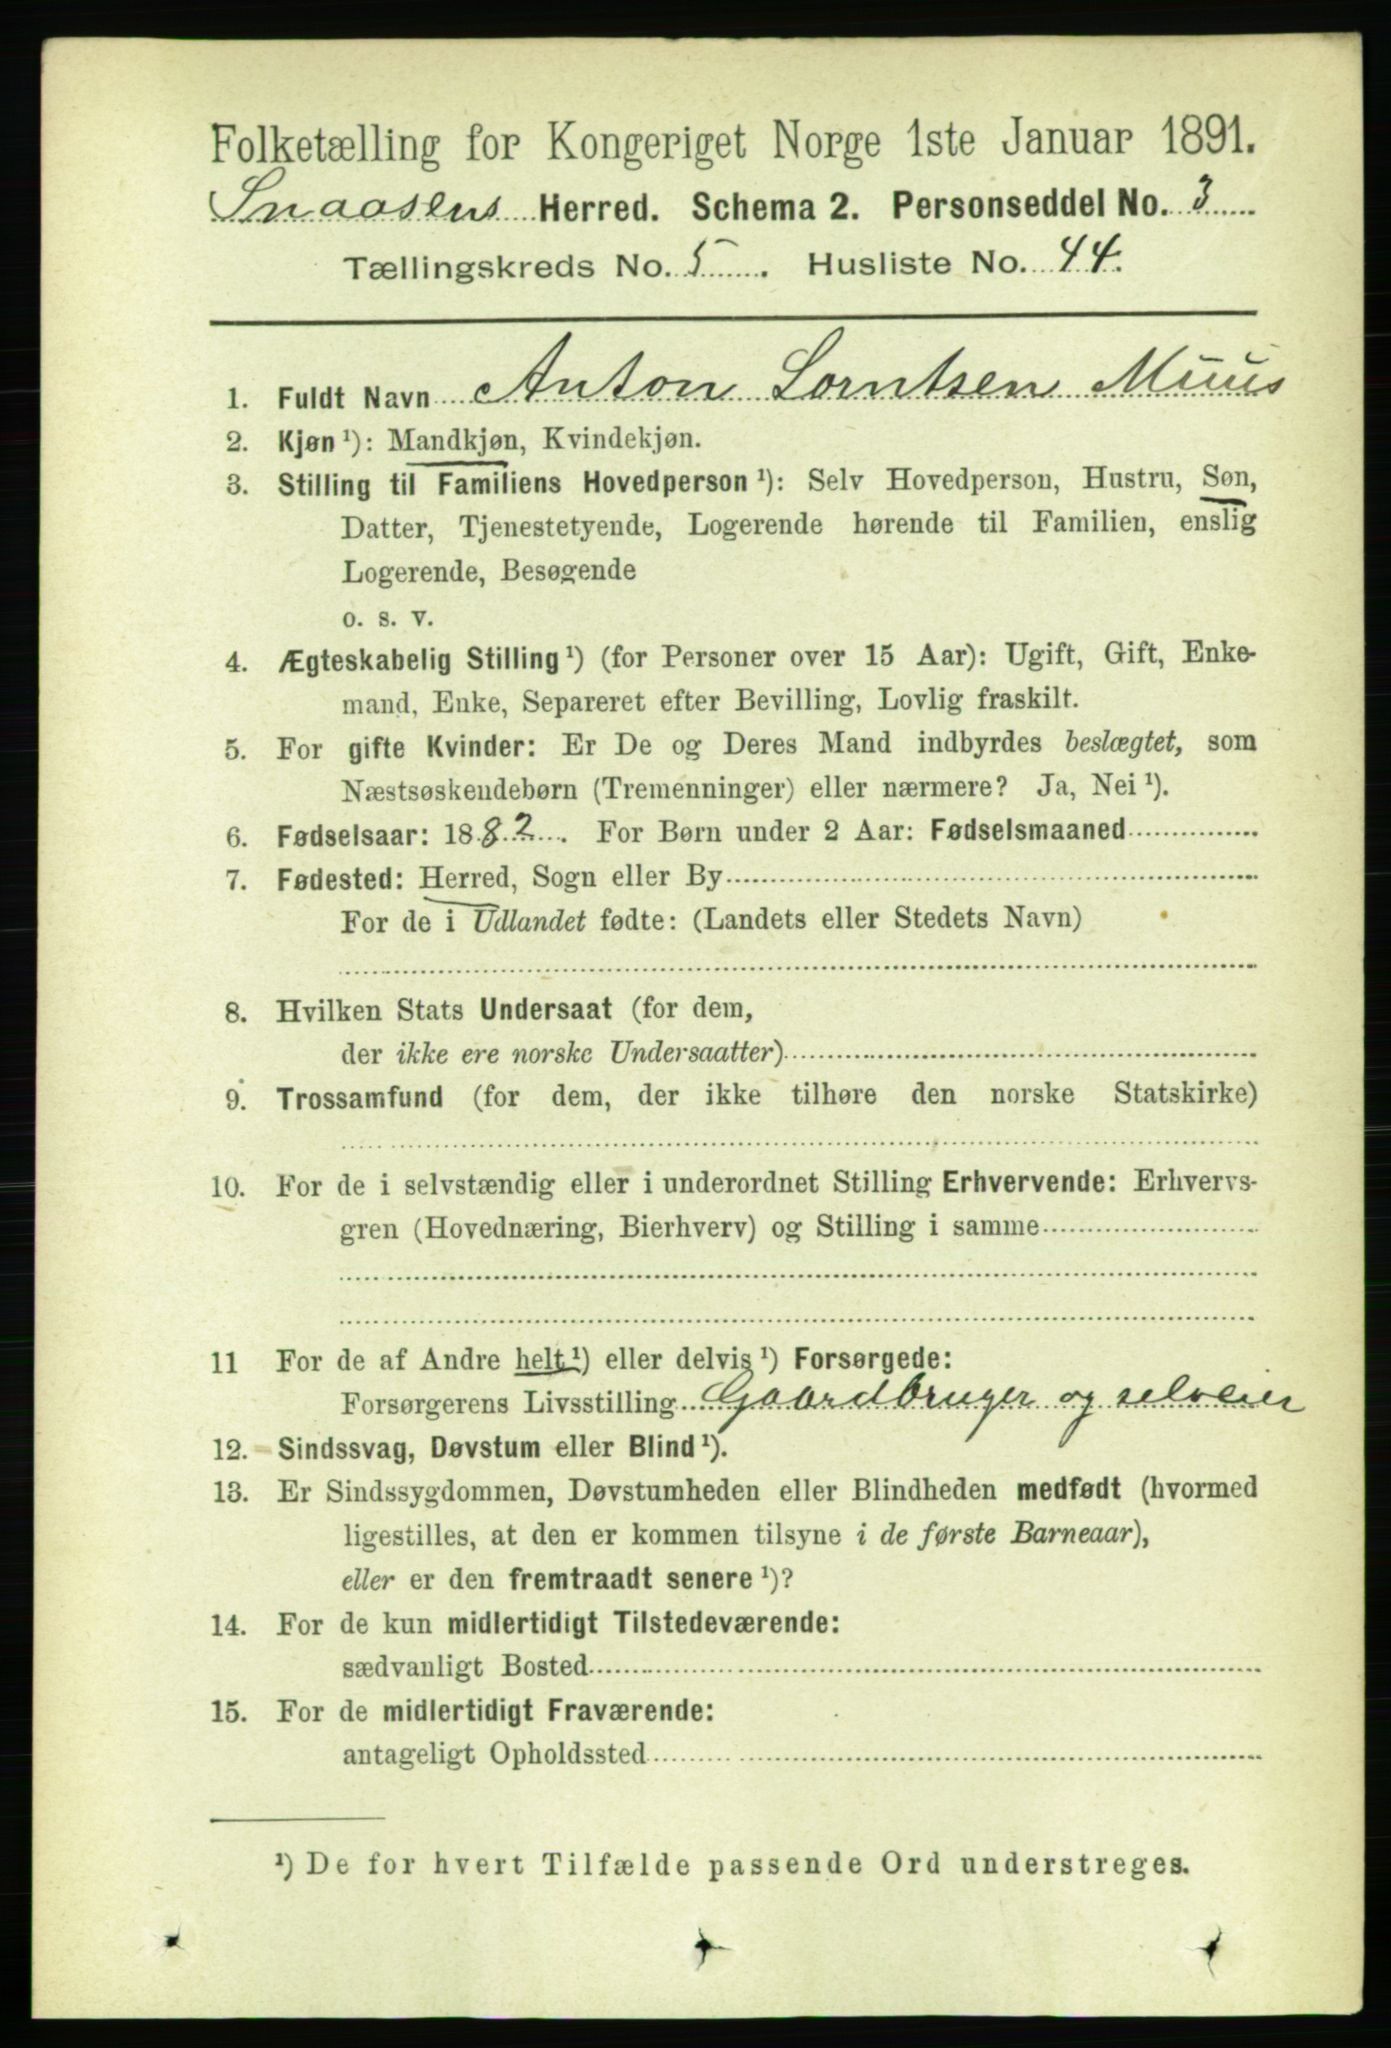 Folketælling for Kongeriget Norge 1ste Januar 1891.
Snaasens Herred. Schema 2. Personseddel No. 3
Tællingskreds No. 5. Husliste No. 44.
1. Fuldt Navn Anton Lorntsen Muus
2. Kjøn ¹): Mandkjøn, Kvindekjøn.
3. Stilling til Familiens Hovedperson ¹): Selv Hovedperson, Hustru, Søn,
Datter, Tjenestetyende, Logerende hørende til Familien, enslig
Logerende, Besøgende
o. s. v.
4. Ægteskabelig Stilling ¹) (for Personer over 15 Aar): Ugift, Gift, Enke-
mand, Enke, Separeret efter Bevilling, Lovlig fraskilt.
5. For gifte Kvinder: Er De og Deres Mand indbyrdes beslægtet, som
Næstsøskendebørn (Tremenninger) eller nærmere? Ja, Nei ¹).
6. Fødselsaar: 1882. For Børn under 2 Aar: Fødselsmaaned
7. Fødested: Herred, Sogn eller By
For de i Udlandet fødte: (Landets eller Stedets Navn)
8. Hvilken Stats Undersaat (for dem,
der ikke ere norske Undersaatter)
9. Trossamfund (for dem, der ikke tilhøre den norske Statskirke)
10. For de i selvstændig eller i underordnet Stilling Erhvervende: Erhvervs-
gren (Hovednæring, Bierhverv) og Stilling i samme
11 For de af Andre helt ¹) eller delvis ¹) Forsørgede:
Forsørgerens Livsstilling Gaardbruger og selveier
12. Sindssvag, Døvstum eller Blind ¹).
13. Er Sindssygdommen, Døvstumheden eller Blindheden medfødt (hvormed
ligestilles, at den er kommen tilsyne i de første Barneaar),
eller er den fremtraadt senere ¹)?
14. For de kun midlertidigt Tilstedeværende:
sædvanligt Bosted
15. For de midlertidigt Fraværende:
antageligt Opholdssted
¹) De for hvert Tilfælde passende Ord understreges.